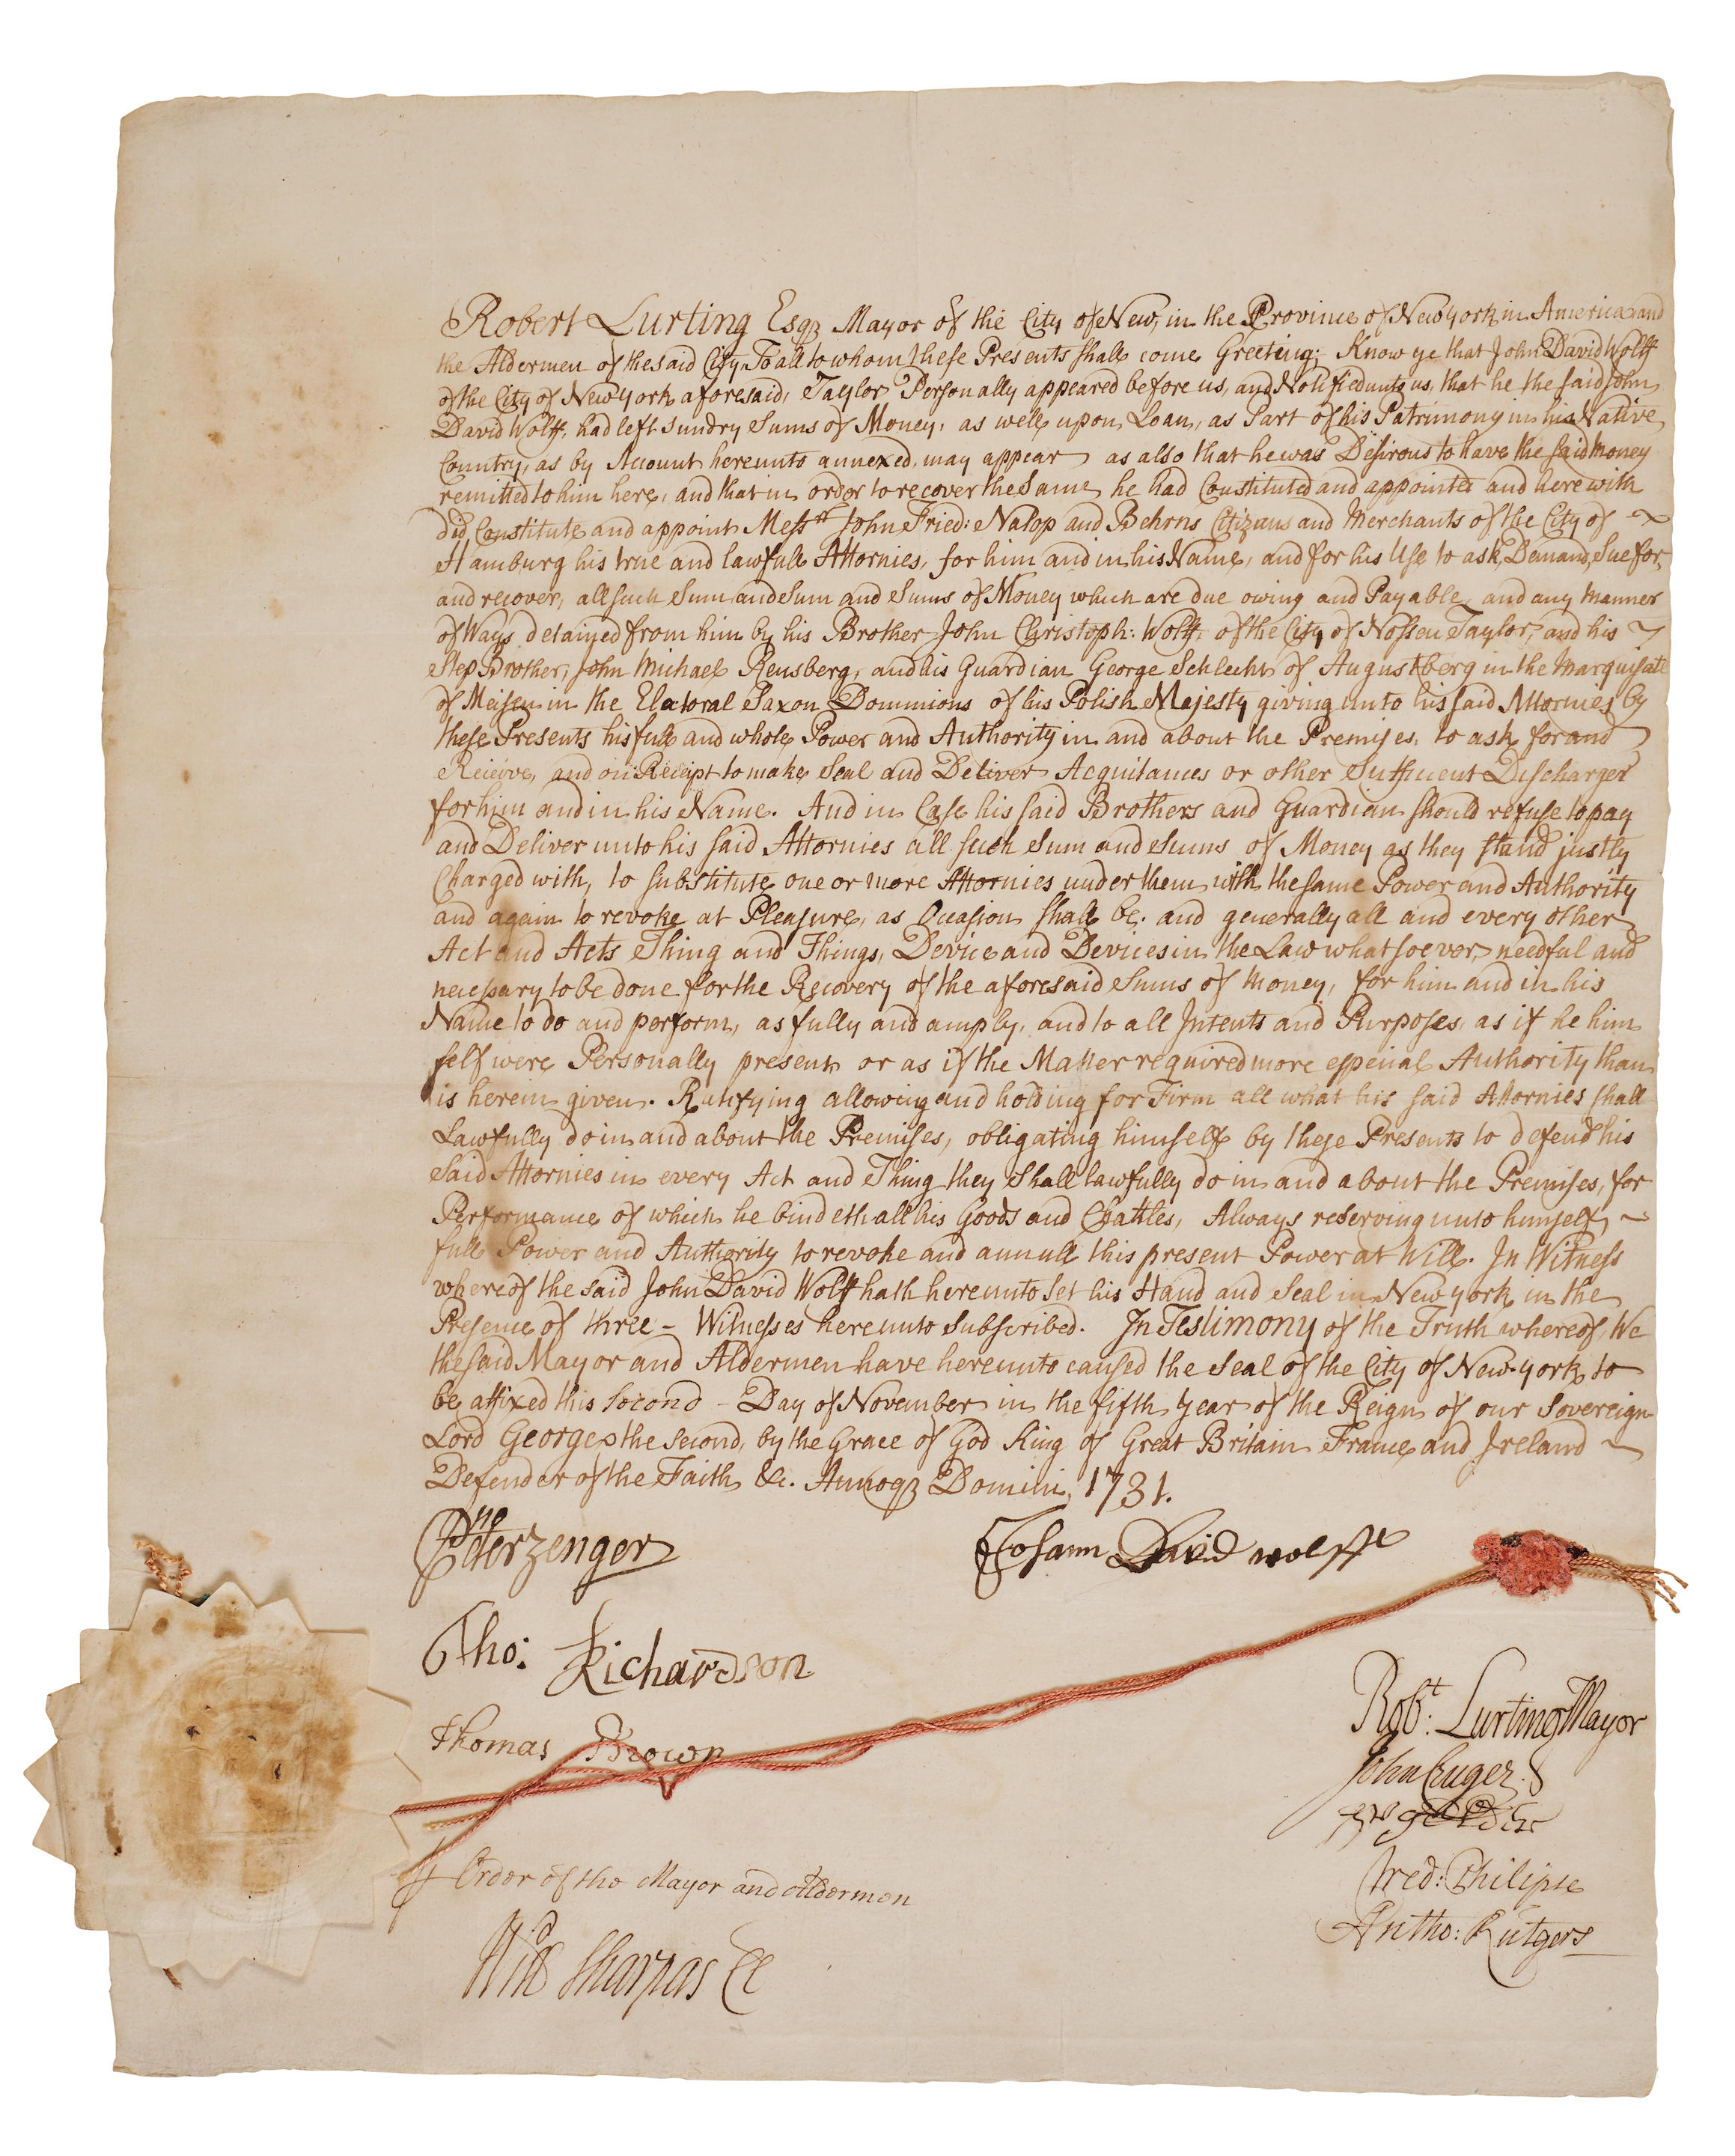 Robert Lurting Esqr Mayor of the City of New, in the Province of New york in America and
the Aldermen of the said City To all to whom these Presents shall come Greeting; Know ye that John David Wolff
of the City of New york aforesaid, Taylor Personally appeared before us, and Notified unto us, that he the said John
David Wolff, had left sundry Sums of Money, as well upon Loan, as Part of his Patrimony in his Native
Country, as by Account hereunto annexed, may appear as also that he was Desirous to have the said Money
remitted to him here, and that in order to recover the Same he had Constituted and appointed and herewith
did Constitute and appoint Messrs John Fried: Natop and Behrns Citizens and Merchants of the City of
Hamburg his true and lawfull Attornies, for him and in his Name, and for his Use to ask, Demand, Sue for,
and recover, all such Sum and Sum and Sums of Money which are due owing and Payable, and any manner
of Ways detained from him by his Brother John Christoph: Wolff, of the City of Nossen Taylor, and his
Step Brother, John Michael Rensberg, and his Guardian George Schlecht of Augustberg in the Marquisate
of Meisen in the Electoral Saxon Dominions of his Polish Majesty giving unto his said Attornies by
these Presents his full and whole Power and Authority in and about the Premises, to ask for and
Receive, and on Receipt to make Seal and Deliver Acquitances or other Sufficient Discharges
for him and in his Name. And in Case his said Brothers and Guardian should refuse to pay
and Deliver unto his said Attornies all such Sum and Sums of Money as they stand justly
Charged with, to substitute one or more Attornies under them with the same Power and Authority
and again to revoke at Pleasure, as Occasion shall be. and generally all and every other
Act and Acts Thing and Things, Device and Devices in the Law whatsoever, needful and
necessary to be done for the Recovery of the aforesaid Sums of Money, for him and in his
Name to do and perform, as fully and amply, and to all Intents and Purposes, as if he him
self were Personally present or as if the Matter required more especial Authority than
is herein given. Ratifying allowing and holding for Firm all what his said Attornies shall
Lawfully do in and about the Premises, obligating himself by these Presents to defend his
Said Attornies in every Act and Thing they Shall lawfully do in and about the Premises, for
Performance of which he bindeth all his Goods and Chattles, Always reserving unto himself,
full Power and Authority to revoke and annull this present Power at Will. In Witness
whereof the said John David Wolff hath hereunto Set his Hand and Seal in New york in the
Presence of three - Witnesses hereunto Subscribed. In Testimony of the Truth whereof, We
the said Mayor and Aldermen have hereunto caused the Seal of the City of New-york to
be affixed this Second - Day of November in the fifth year of the Reign of our Sovereign
Lord George the Second, by the Grace of God King of Great Britain France and Ireland
Defender of the Faith &c. Annoq Domini, 1731.
Pieter Zenger
Johann David wolff
Tho: Richardson
Thomas Brown
Robt: Lurting Mayor
John Cruger
Fred: Philipse
Antho: Rutgers
Order of the Mayor and Aldermen
Will Sharpas Cl